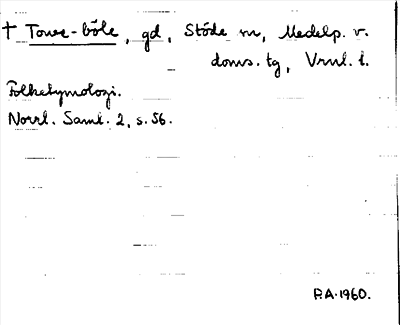 † Towe-böle, gd, Stöde sn, Medelp. v.
doms. tg, Vrnl. l.
Folketymologi.
Norrl. Saml. 2, s. 56.
P.A. 1960.